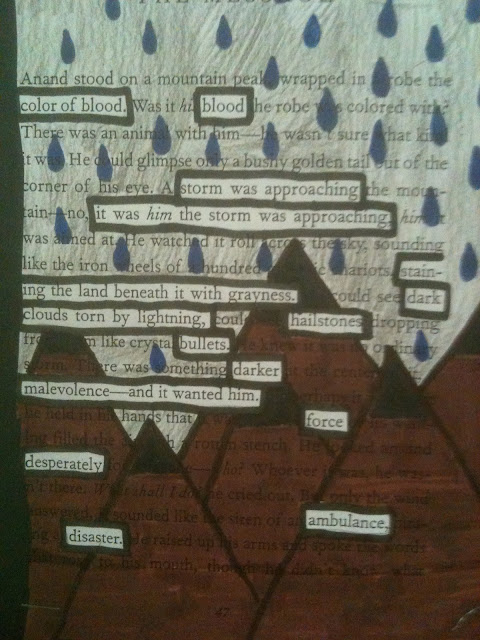 THE MESSAGE
Anand stood on a mountain peak, wrapped in robe the
color of blood. Was it his blood the robe was colored with?
There was an animal with him—he wasn't sure what kind
it was. He could glimpse only a bushy golden tail out of the
corner of his eye. A storm was approaching the moun-
tain—no, it was him the storm was approaching, him
was aimed at. He watched it roll across the sky, sounding
like the iron wheels of a hundred chariots, stain-
ing the land beneath it with grayness. could see dark
clouds torn by lightning, hailstones dropping
from like crystal bullets. He knew it was no ordinary
storm. There was something darker at the center
malevolence—and it wanted him.
he held in his hands that force
ing filled the rotten stench. He looked around
desperately Whoever it was, he was-
n't there. What shall I do? he cried out. But only the wind
answered, it sounded like the siren of an ambulance,
disaster. He raised up his arms and spoke the words
in his mouth, though he didn't know what
47